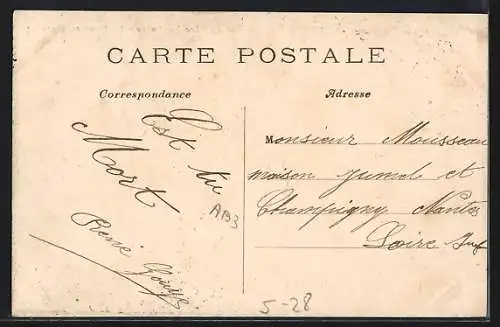 CARTE POSTALE
Correspondance
Est tu
Mort
René Gouys
AB3
Adresse
Monsieur Mousseau
maison Jumel et
Champigny Nantes
Loire Inf
5-28